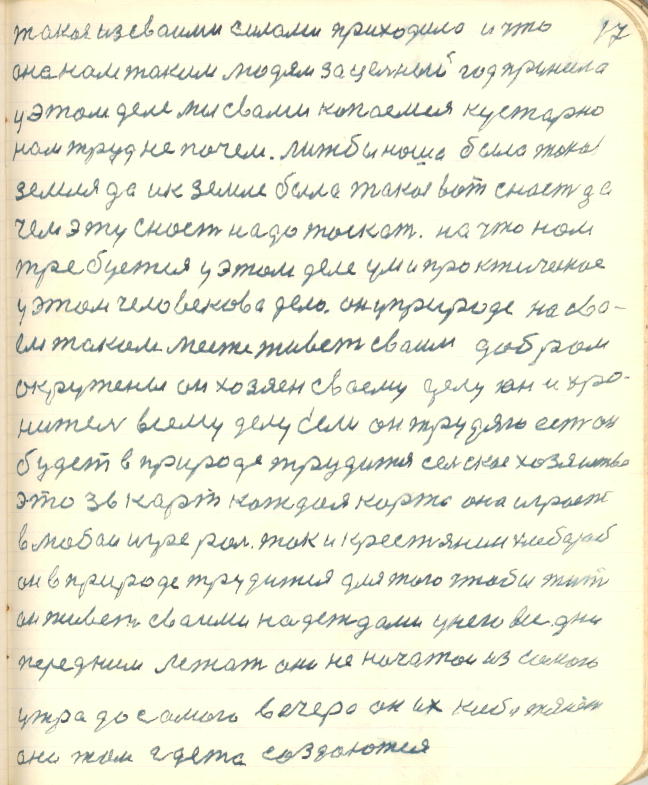 такая из сваими силами приходила и что 17
она нам таким людям зацелный год принила
у этом деле мы свами копаемся кустарно
нам труд не почем. лиж бы наша была така
земля да и к земле была такая вот снаст за
чем эту снаст надо тоскат. на что нам
требуется у этом деле ум и практическое
у этом человекова дело. он у природе на сво-
ем таком месте живет сваим добром
окружены он хозяен своему делу он и хро-
нител всему делу если он трудяга ест он
будет в природе трудится селское хозяиство
это 36 карт каждая карта она играет
в любои игре рол. так и крестянин хлебароб
он в природе трудится для того чтобы жит
он живет сваими надеждами у него все дни
передним лежат они не начатои из самого
утра до самого вечера он их
они там гдета создаются